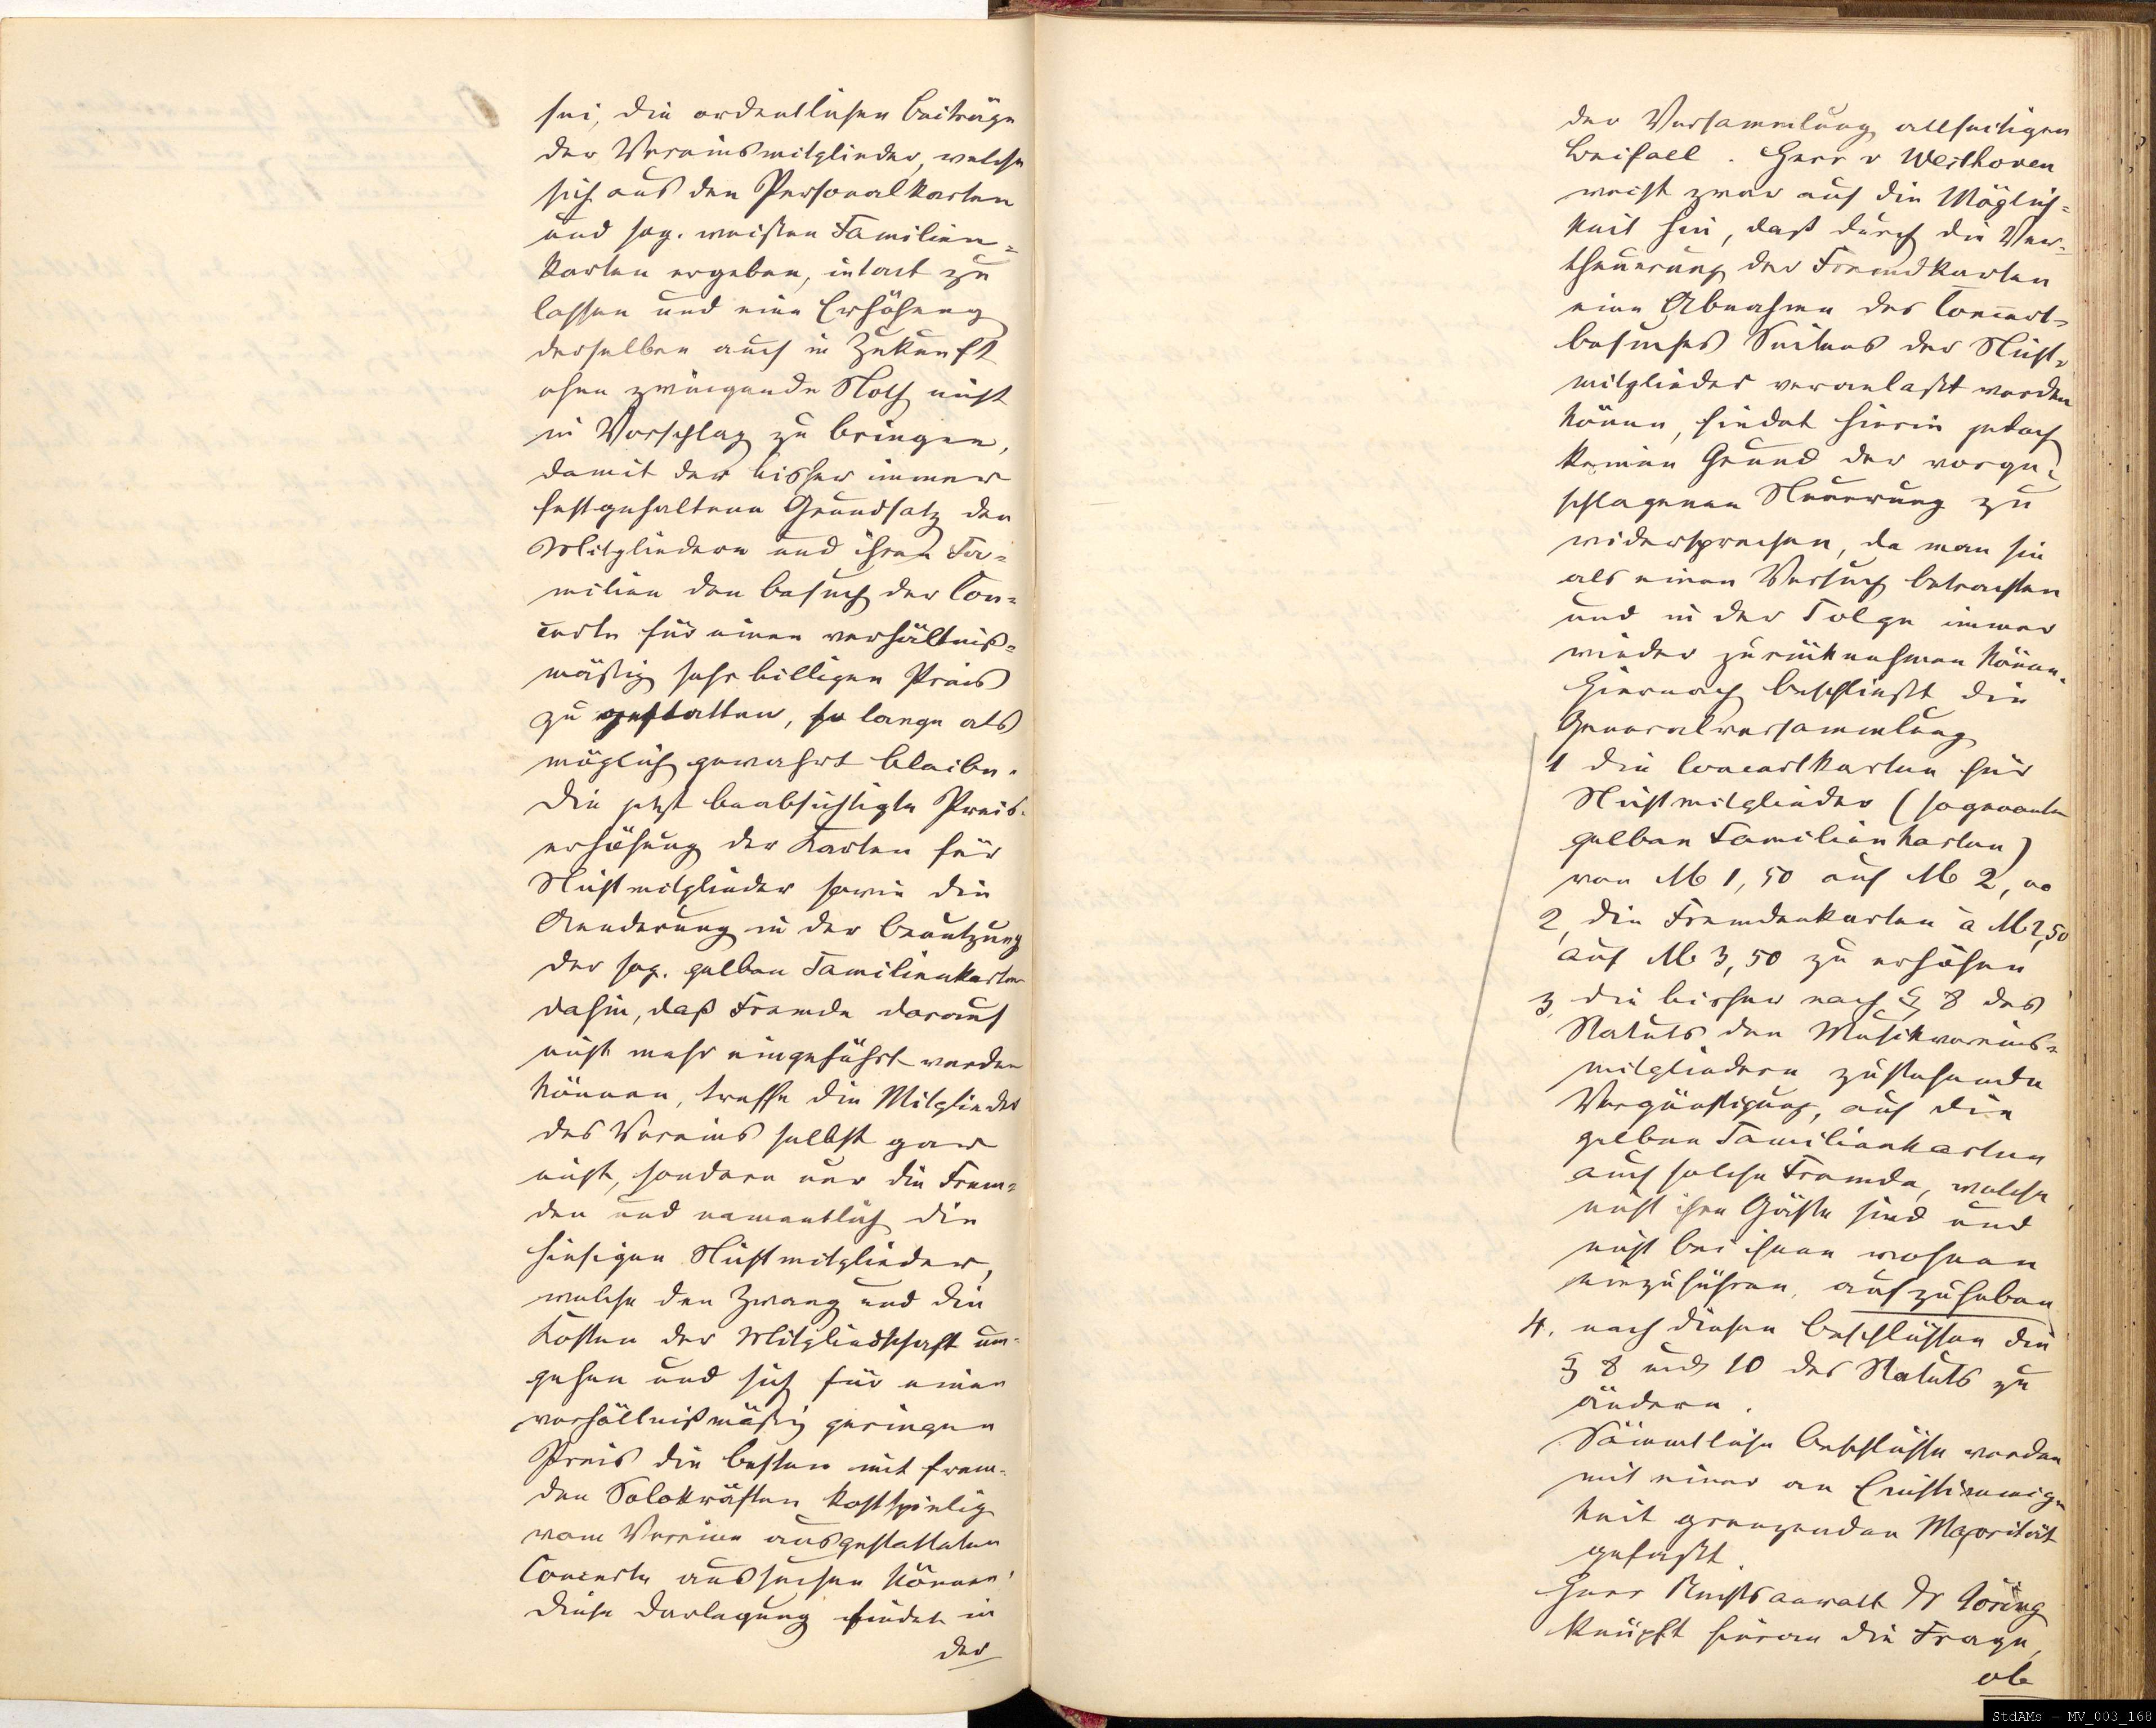 sei, die ordentlichen Beiträge
der Vereinsmitglieder, welche
sich aus den Personalkarten
und sog. weißen Familien-
karten ergeben, intact zu
lassen und eine Erhöhung
derselben auch in Zukunft
ohne zwingende Noth nicht
in Vorschlag zu bringen,
damit der bisher immer
festgehaltene Grundsatz den
Mitgliedern und ihren Fa-
milien den Besuch der Con-
certe für einen verhältniß-
mäßig sehr billigen Preis
zu gestatten, so lange als
möglich gewahrt bleibe.
Die jetzt beabsichtigte Preis-
erhöhung der Karten für
Nichtmitglieder sowie die
Aenderung in der Benutzung
der sog. gelben Familienkarten
dahin, daß Fremde darauf
nicht mehr eingeführt werden
können, treffe die Mitglieder
des Vereins selbst gar
nicht, sondern nur die Frem-
den und namentlich die
hiesigen Nichtmitglieder,
welche den Zwang und die
Kosten der Mitgliedschaft um-
gehen und sich für einen
verhältnißmäßig geringen
Preis die besten mit frem-
den Solokräften kostspielig
vom Vereine ausgestatteten
Concerte aussuchen können.
Diese Darlegung findet in
der
der Versammlung allseitigen
Beifall. Herr v Westhoven
weist zwar auf die Möglich-
keit hin, daß durch die Ver-
theuerung der Fremdkarten
eine Abnahme des Concert-
besuches Seitens der Nicht-
mitglieder veranlaßt werden
könne, findet hierin jedoch
keinen Grund der vorge-
schlagenen Neuerung zu
widersprechen, da man sie
als einen Versuch betrachten
und in der Folge immer
wieder zurücknehmen könne.
Hiernach beschließt die
Generalversammlung
1 die Concertkarten für
Nichtmitglieder (sogenannte
gelben Familienkarten)
von M 1,50 auf M 2,00
2, die Fremdenkarten à M 2,50
auf M 3,50 zu erhöhen
3, die bisher nach § 8 des
Statuts den Musikvereins-
mitgliedern zustehende
Vergünstigung, auf die
gelben Familienkarten
auch solche Fremde, welche
nicht ihre Gäste sind und
nicht bei ihnen wohnen
einzuführen, aufzuheben
4. nach diesen Beschlüssen die
§ 8 und 10 des Statuts zu
ändern.
Sämmtliche Beschlüsse werden
mit einer an Einstimmig
keit grenzenden Majorität
gefaßt.
Herr Rechtsanwalt Dr
knüpft hieran die Frage,
ob
StdAMs - MV_003_168